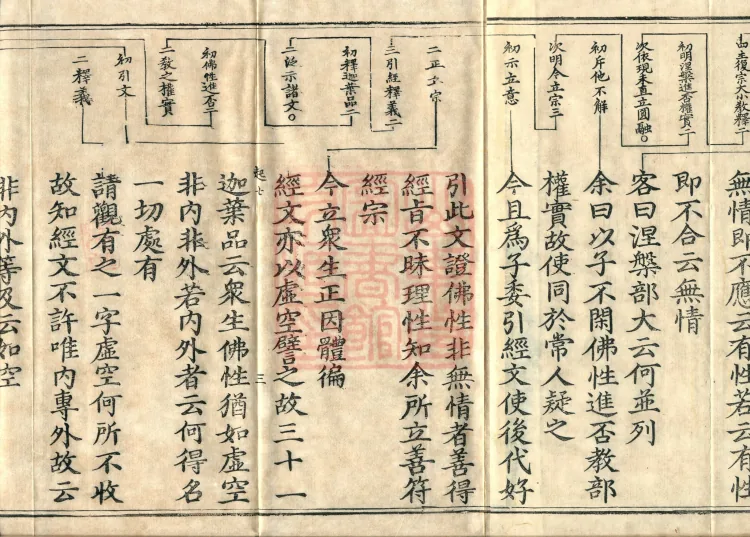 復宗大小教釋二
初明涅槃進否權實二
次依現未直立圓融。
初斥他不解
次明今立宗三
初示立意
二正立宗
三引經釋義二
初釋迦葉品二
二泛示諸文。
二教之權實
初佛性進否二
初引文
二釋義
無情即不應云有性若云有性
即不合云無情
客曰涅槃部大云何並列
余曰以子不閑佛性進否教部
權實故使同於常人疑之
今且爲子委引經文使後代好
引此文證佛性非無情者善得
經旨不昧理性知余所立善符
經宗
今立衆生正因體徧
經文亦以虛空譬之故三十一
三
迦葉品云衆生佛性猶如虛空
非內非外若內外者云何得名
一切處有
請觀有之一字虛空何所不收
故知經文不許唯內專外故云
非內外等及云如空